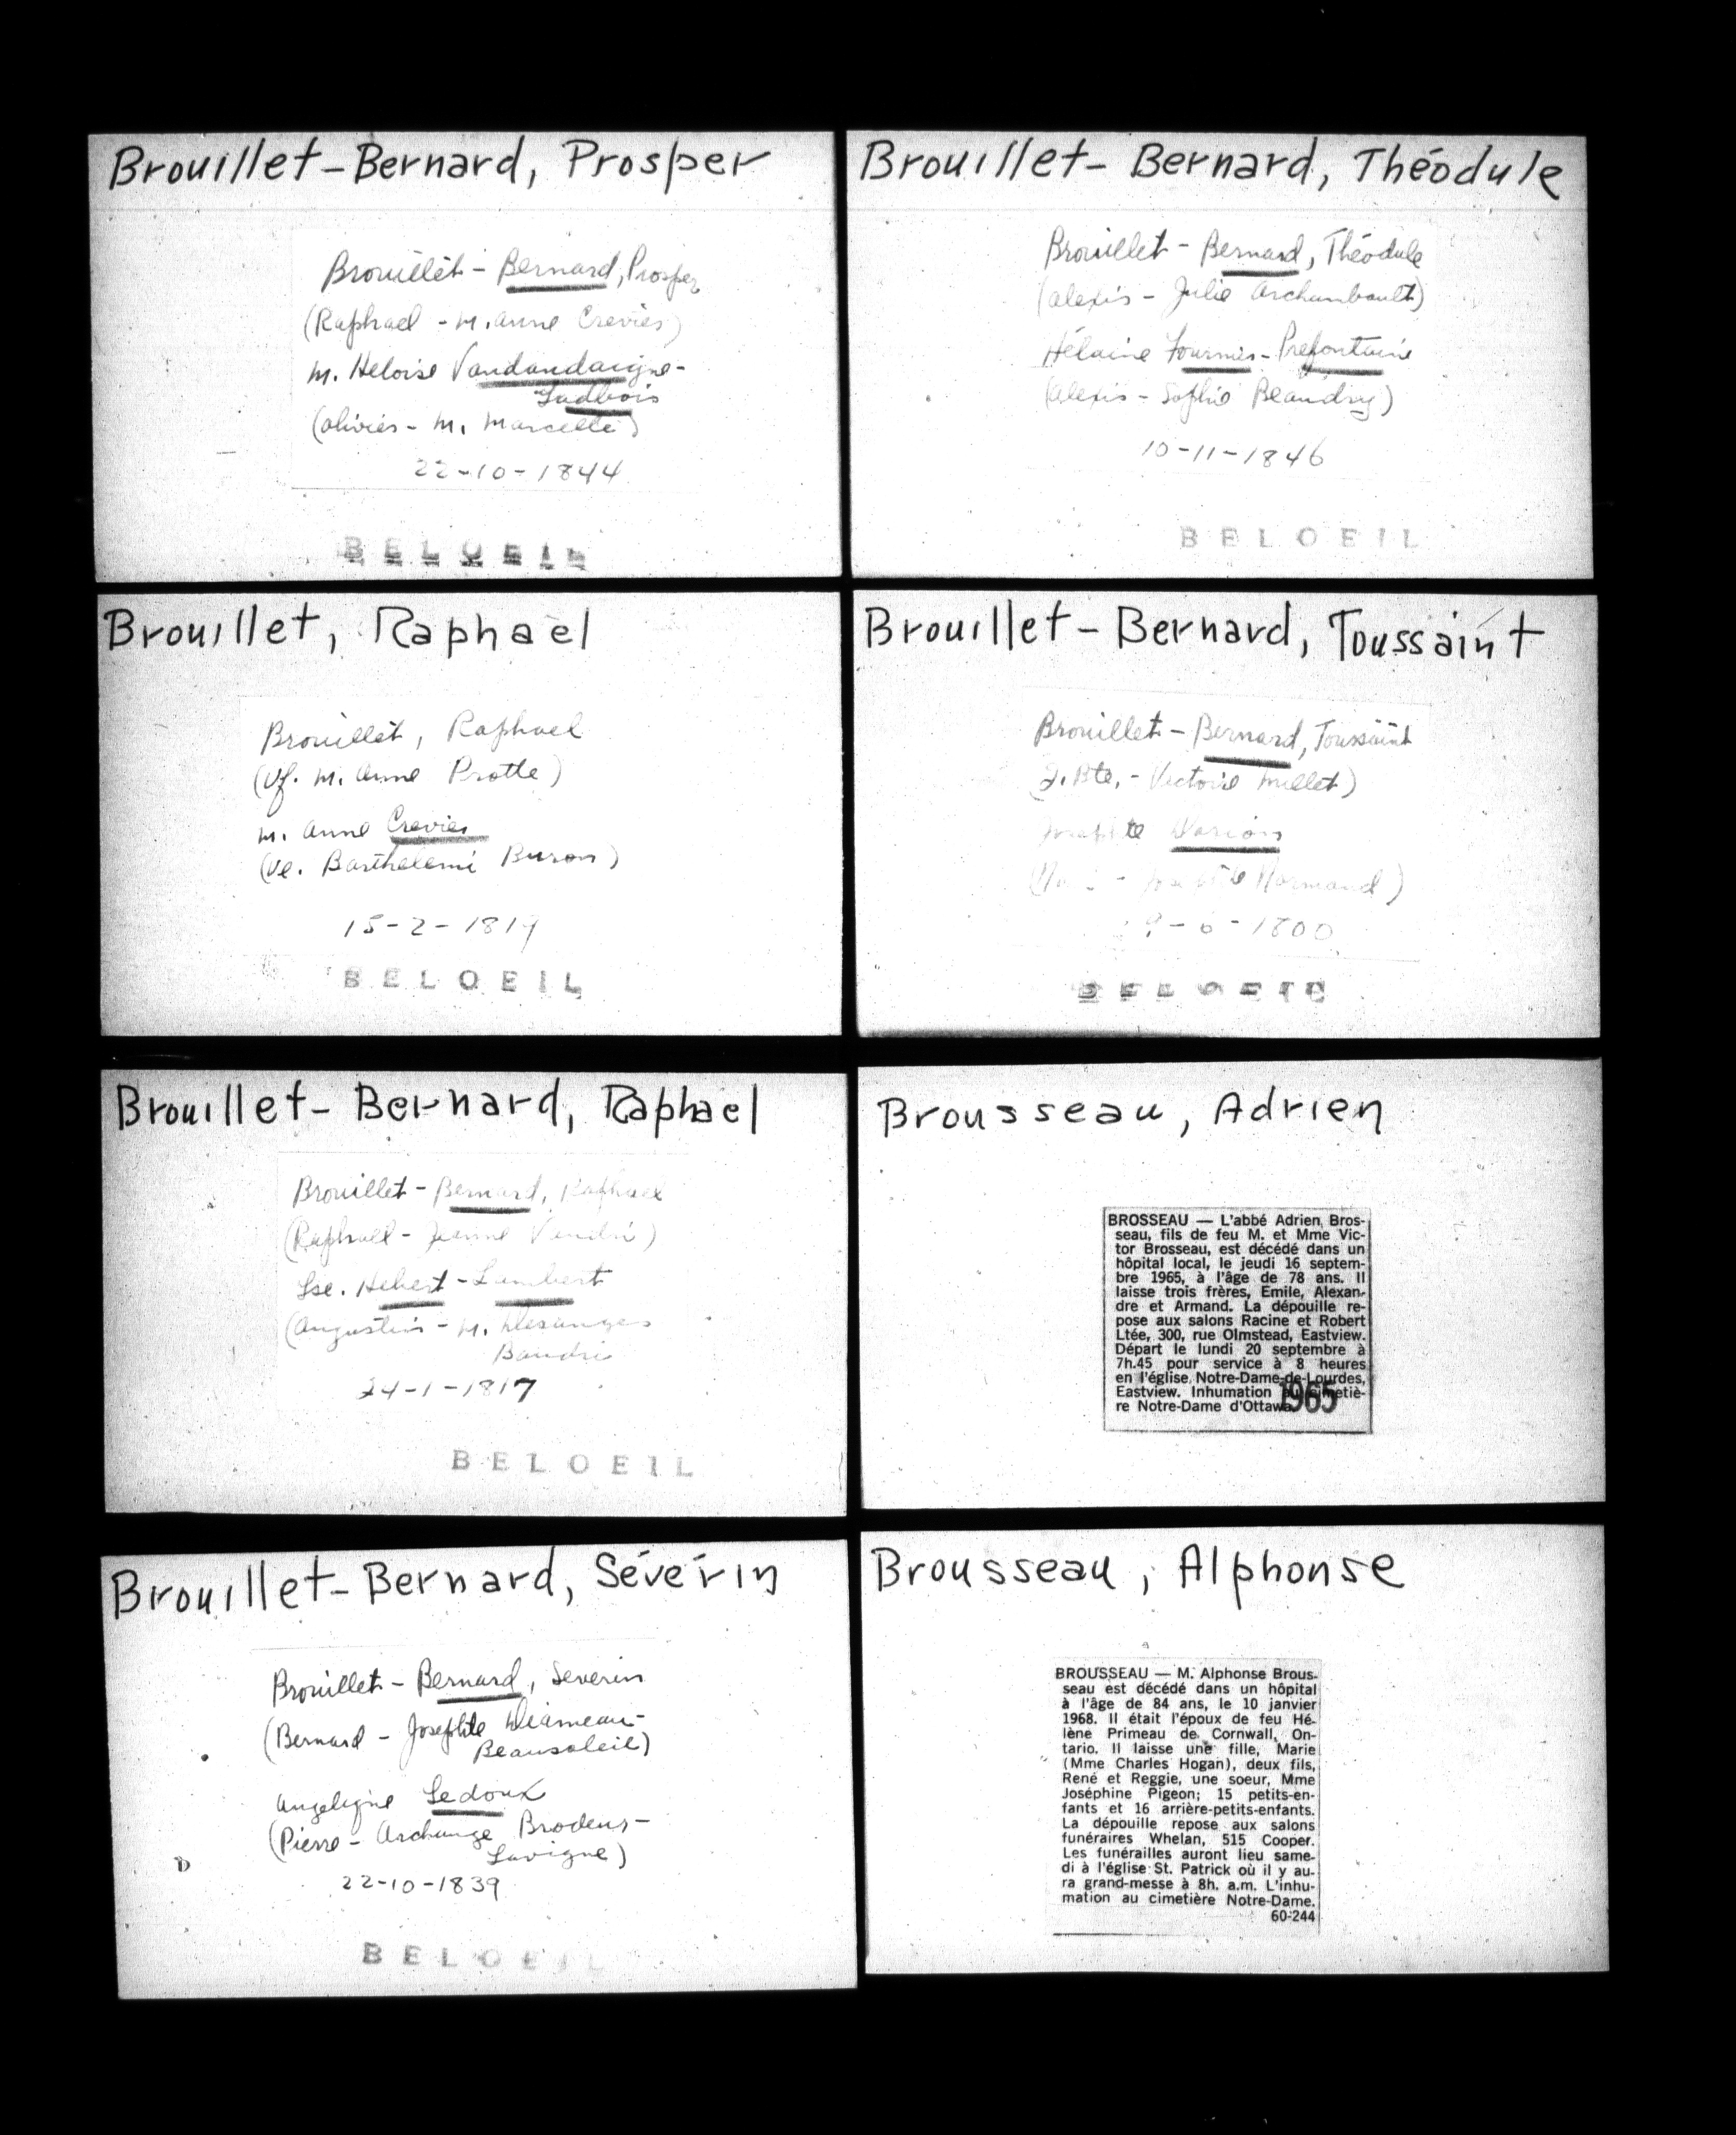 Brouillet-Bernard, Prosper
Brouillet - Bernard, Prosper
(Raphael - M. Anne Crevier)
M. Heloise Vandandaigne-
Gadbois
(Olivier - M. Marcelle)
22-10-1844
BELOEIL
Brouillet, Raphael
Brouillet, Raphael
(Vf. M. Anne Protte)
M. Anne Crevier
(Ve. Barthelemi Buron)
15-2-1819
BELOEIL
Brouillet-Bernard, Raphael
Brouillet - Bernard, Raphael
(Raphael - Jeanne
Lse. Hebert - Lambert
(Augustin - M. Desanges
Baudri
24-1-1817
BELOEIL
Brouillet-Bernard, Sévérin
Brouillet - Bernard, Severin
(Bernard - Josephte Diameau-
Beausoleil)
Angelique Ledoux
(Pierre - Archange Brodeur-
Lavigne)
22-10-1839
BELOEIL
Brouillet-Bernard, Théodule
Brouillet - Bernard, Théodule
(Alexis - Julie Archambault)
Hélaine Fournier - Prefontaine
(Alexis - Sophie Beaudry)
10-11-1846
BELOEIL
Brouillet-Bernard, Toussaint
Brouillet - Bernard, Toussaint
(J. Bte. - Victoire Millet)
Darion
Normand)
1800
BELOEIL
Brousseau, Adrien
BROSSEAU — L'abbé Adrien Bros-
seau, fils de feu M. et Mme Vic-
tor Brosseau, est décédé dans un
hôpital local, le jeudi 16 septem-
bre 1965, à l'âge de 78 ans. Il
laisse trois frères, Emile, Alexan-
dre et Armand. La dépouille re-
pose aux salons Racine et Robert
Ltée, 300, rue Olmstead, Eastview.
Départ le lundi 20 septembre à
7h.45 pour service à 8 heures
en l'église Notre-Dame-de-Lourdes,
Eastview. Inhumation au cimetiè-
re Notre-Dame d'Ottawa.
1965
Brousseau, Alphonse
BROUSSEAU — M. Alphonse Brous-
seau est décédé dans un hôpital
à l'âge de 84 ans, le 10 janvier
1968. Il était l'époux de feu Hé-
lène Primeau de Cornwall, On-
tario. Il laisse une fille, Marie
(Mme Charles Hogan), deux fils,
René et Reggie, une soeur, Mme
Joséphine Pigeon; 15 petits-en-
fants et 16 arrière-petits-enfants.
La dépouille repose aux salons
funéraires Whelan, 515 Cooper.
Les funérailles auront lieu same-
di à l'église St. Patrick où il y au-
ra grand-messe à 8h. a.m. L'inhu-
mation au cimetière Notre-Dame.
60-244